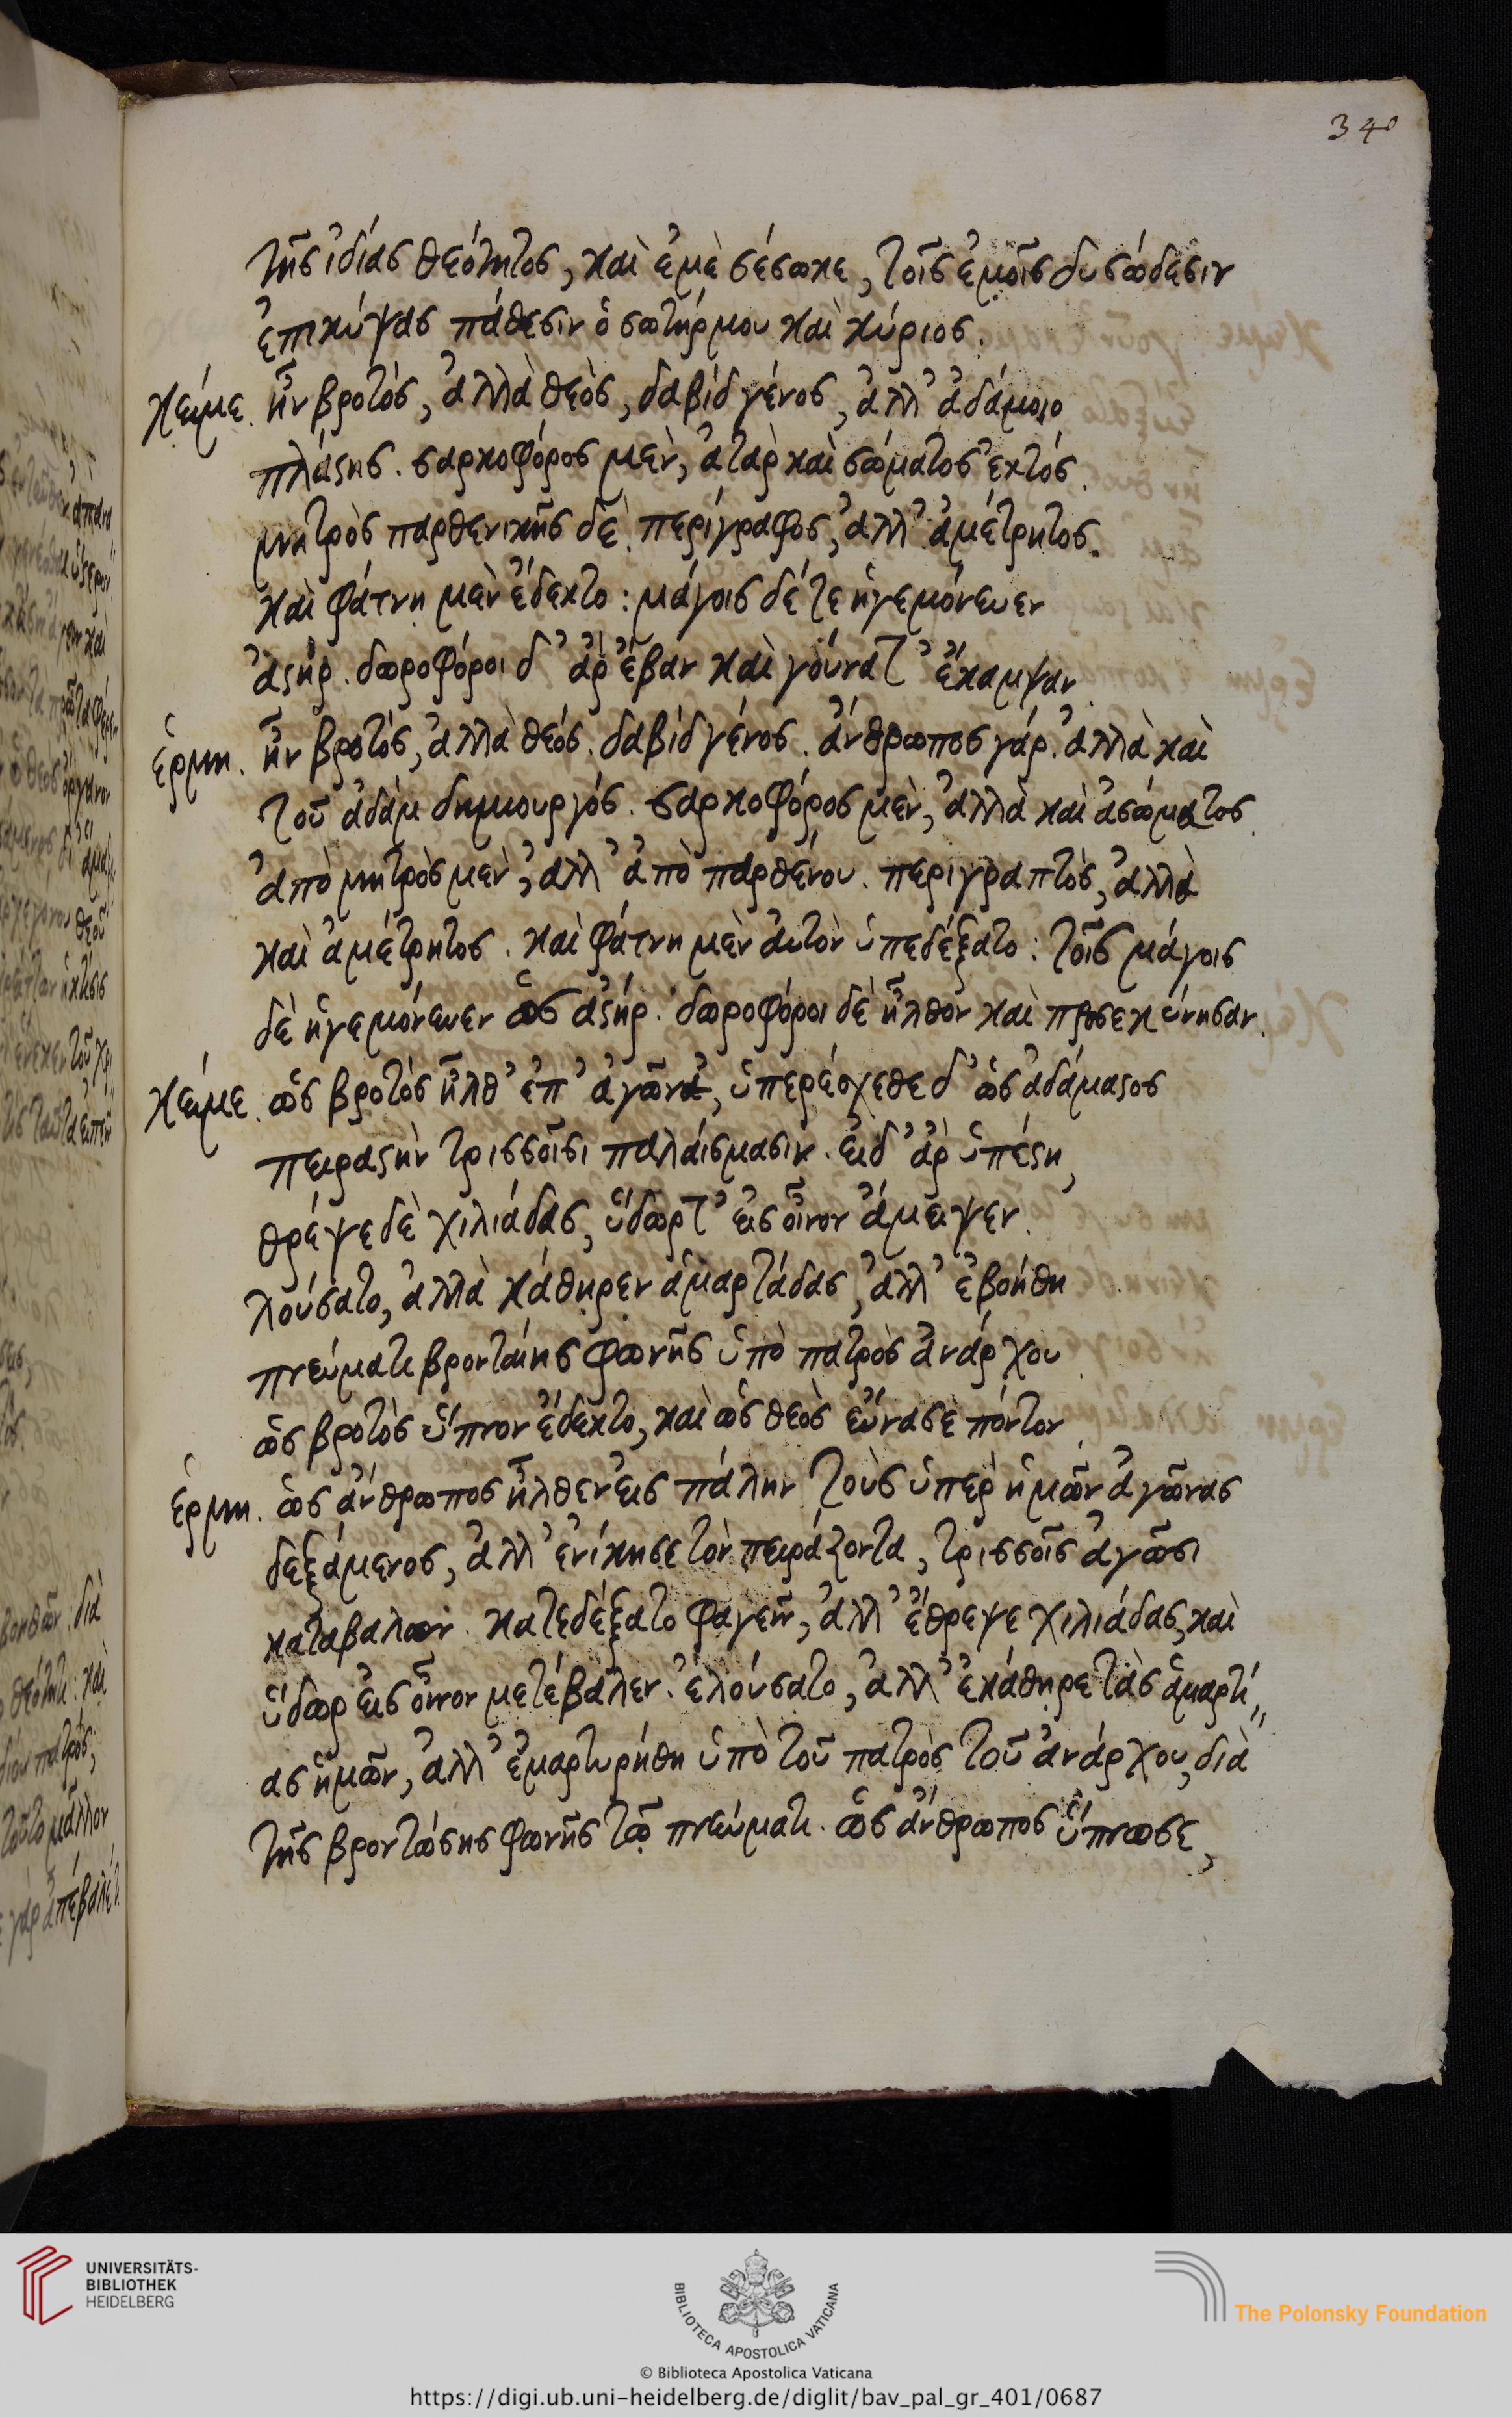 340
τῆς ἰδίας θεότητος, καὶ ἐμὲ σέσωκε, τοῖς ἐμοῖς δυσώδεσιν
ἐπικύψας πάθεσιν ὁ σωτήρ μου καὶ κύριος.
κείμε. ἦν βροτὸς, ἀλλὰ θεὸς, δαβὶδ γένος, ἀλλ' ἀδάμοιο
πλάστης. σαρκοφόρος μὲν, ἀτὰρ καὶ σώματος ἐκτός.
μητρὸς παρθενικῆς δὲ. περίγραφος, ἀλλ' ἀμέτρητος.
καὶ φάτνη μὲν ἔδεκτο: μάγοις δέ τε ἡγεμόνευεν
ἀστήρ. δωροφόροι δ' ἀρ' ἔβαν καὶ γούνατ' ἔκαμψαν
ἑρμη. ἦν βροτὸς, ἀλλὰ θεός. δαβὶδ γένος. ἄνθρωπος γάρ. ἀλλὰ καὶ
τοῦ ἀδάμ δημιουργός. σαρκοφόρος μὲν, ἀλλὰ καὶ ἀσώματος.
ἀπὸ μητρὸς μὲν, ἀλλ' ἀπὸ παρθένου. περιγραπτὸς, ἀλλὰ
καὶ ἀμέτρητος. καὶ φάτνη μὲν αὐτὸν ὑπεδέξατο: τοῖς μάγοις
δὲ ἡγεμόνευεν ὡς ἀστήρ. δωροφόροι δὲ ἦλθον καὶ προσεκύνησαν.
κείμε. ὡς βροτὸς ἦλθ' ἐπ' ἀγῶνα, ὑπερέσχεθε δ' ὡς ἀδάμαστος
πειραστὴν τρισσοῖσι παλαίσμασιν. εἰδ' ἀρ ὑπέστη,
θρέψε δὲ χιλιάδας, ὕδωρ τ' εἰς οἶνον ἄμειψεν.
λούσατο, ἀλλὰ κάθηρεν ἁμαρτάδας, ἀλλ' ἐβοήθη
πνεύματι βρονταίης φωνῆς ὑπὸ πατρὸς ἀνάρχου.
ὡς βροτὸς ὕπνον ἔδεκτο, καὶ ὡς θεὸς εὔνασε πόντον.
ἑρμη. ὡς ἄνθρωπος ἦλθεν εἰς πάλην τοὺς ὑπὲρ ἡμῶν ἀγῶνας
δεξάμενος, ἀλλ' ἐνίκησε τὸν πειράζοντα, τρισσοῖς ἀγῶσι
καταβαλών. κατεδέξατο φαγεῖν, ἀλλ' ἔθρεψε χιλιάδας, καὶ
ὕδωρ εἰς οἶνον μετέβαλεν. ἐλούσατο, ἀλλ' ἐκάθηρε τὰς ἁμαρτί„
ας ἡμῶν, ἀλλ' ἐμαρτυρήθη ὑπὸ τοῦ πατρὸς τοῦ ἀνάρχου, διὰ
τῆς βροντώσης φωνῆς τῷ πνεύματι. ὡς ἄνθρωπος ὕπνωσε,
UNIVERSITÄTS-
BIBLIOTHEK
HEIDELBERG
BIBLIOTECA APOSTOLICA VATICANA
The Polonsky Foundation
© Biblioteca Apostolica Vaticana
https://digi.ub.uni-heidelberg.de/diglit/bav_pal_gr_401/0687